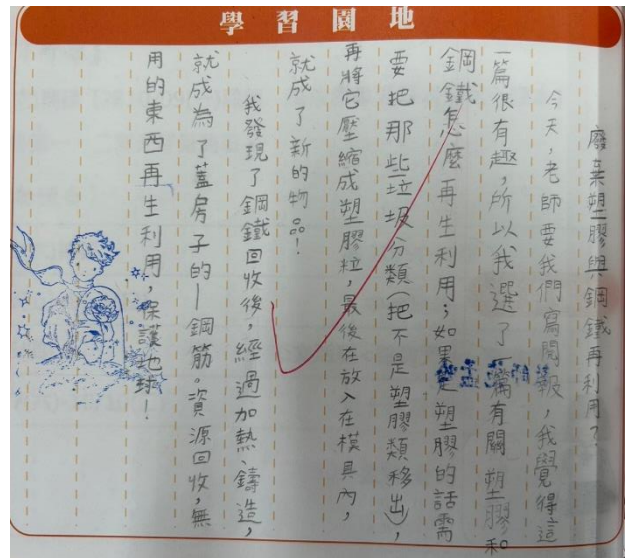 學習園地
廢棄塑膠與鋼鐵再利用?
今天,老師要我們寫閱報,我覺得這
一篇很有趣,所以我選了一篇有關塑膠和
鋼鐵怎麼再生利用;如果是塑膠的話需
要把那些垃圾分類(把不是塑膠類移出),
再將它壓縮成塑膠粒,最後在放入在模具內,
就成了新的物品!
我發現了鋼鐵回收後,經過加熱、鑄造,
就成為了蓋房子的—鋼筋。資源回收,無
用的東西再生利用,保護地球!